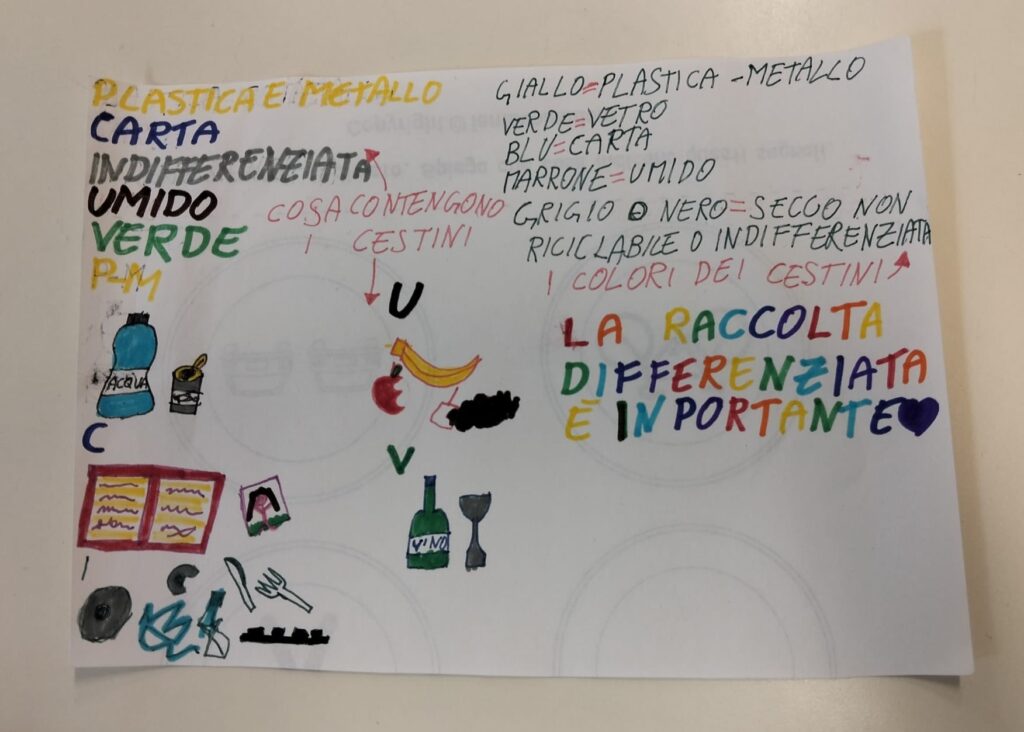 PLASTICA E METALLO
CARTA
INDIFFERENZIATA
UMIDO
VERDE
COSA CONTENGONO
I CESTINI
GIALLO=PLASTICA -METALLO
VERDE=VETRO
BLU=CARTA
MARRONE=UMIDO
GRIGIO O NERO=SECCO NON
RICICLABILE O INDIFFERENZIATA
I COLORI DEI CESTINI
LA RACCOLTA
DIFFERENZIATA
È INPORTANTE
P-M
ACQUA
U
C
V
VINO
I